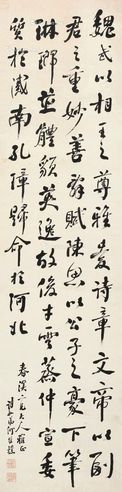 魏武以相王之尊雅愛詩章文帝以副
君之重妙善辭賦陳思以公子之豪下筆
琳瑯並體貌英逸故俊才雲蒸仲宣委
質於漢南孔璋歸命於河北
春溪六兄大人雅正